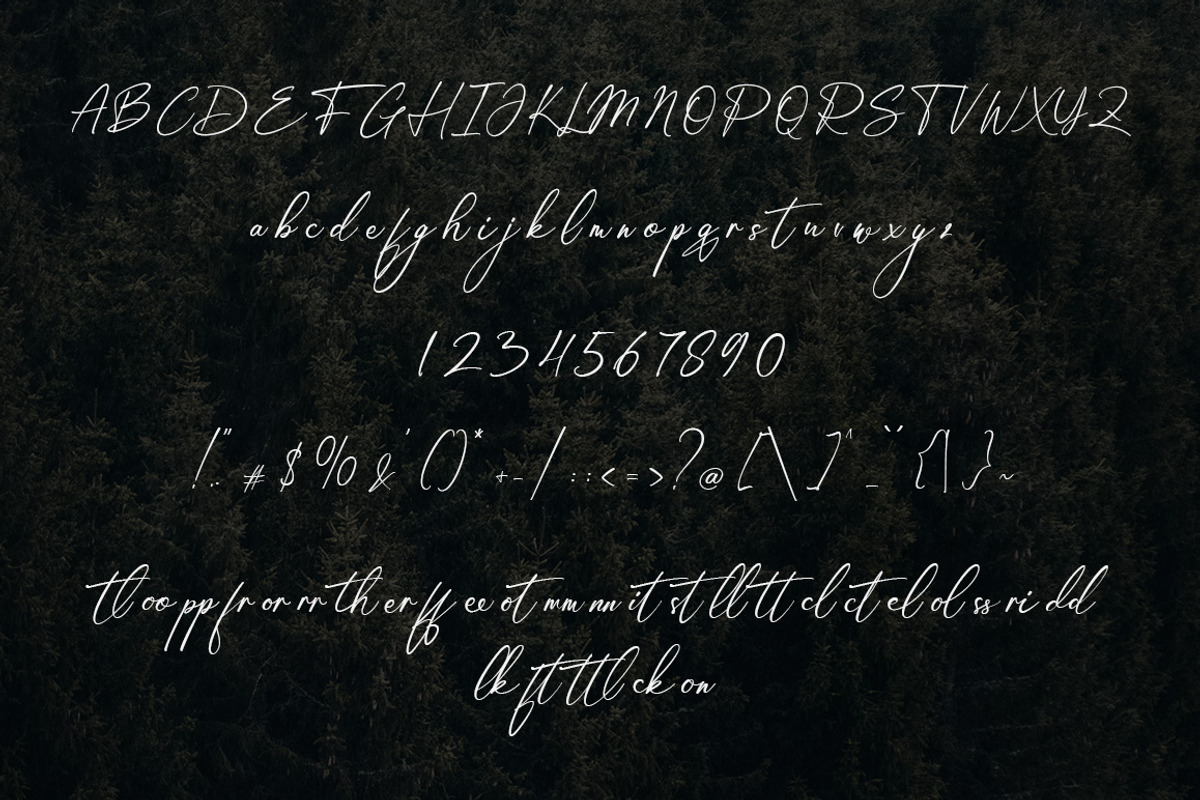 ABCDEFGHIJKLMNOPQRSTVWXYZ
abcdefghijklmnopqrstuvwxyz
1234567890
!" .. # $ % & ' ( ) * + - / : : < = > ? @ [ \ ] ^ _ `` { | } ~
tl oo pp fr or rr th er ff ee ot mm nn it st ll tt cl ct el ol ss ri dd
lk ft ttl ck on